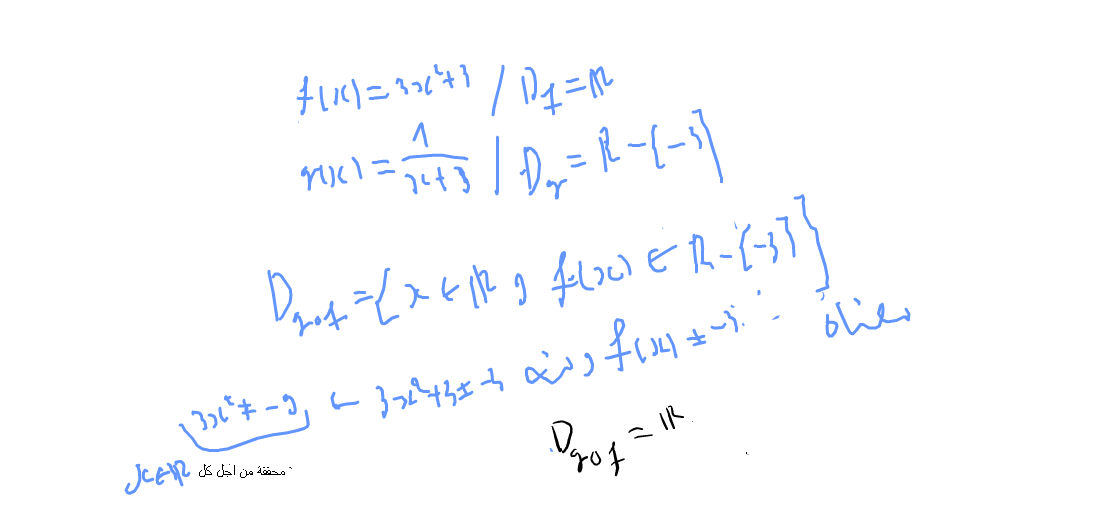 f(x) = 3x²+3 / D_f = ℝ
g(x) = 1/(x+3) | D_g = ℝ-{-3}
D_gof = {x ∈ ℝ و f(x) ∈ ℝ-{-3}}
معناه : f(x) ≠ -3 و منه 3x²+3 ≠ -3 ← 3x² ≠ -9
محققة من اجل كل x∈ℝ
D_gof = ℝ